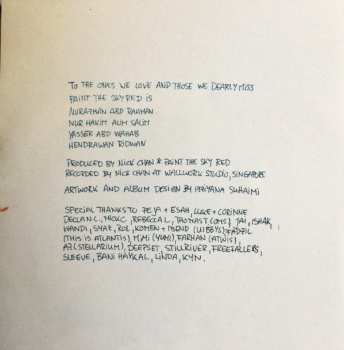 TO THE ONES WE LOVE AND THOSE WE DEARLY MISS
PAINT THE SKY RED IS
NURAIMAN ABD RAHMAN
NUR HAKIM ALIM SALIM
YASSER ABD WAHAB
HENDRAWAN RIDWAN
PRODUCED BY NICK CHAN & PAINT THE SKY RED
RECORDED BY NICK CHAN AT WALLWORK STUDIO, SINGAPORE
ARTWORK AND ALBUM DESIGN BY PRIYANA SUHAIMI
SPECIAL THANKS TO + ESAH, LUKE + CORINNE
DECLAN C, REBECCA L, JAI, ISHAK,
HANDI, SYAF, ROL, KOMEN + FADZIL
(THIS IS ATLANTIS), MIMI (YUMI), FARHAN (ATWIS),
(STELLARIUM), DEEPSET, STILLRIVER, FREEFALLERS,
SLEEVE, BANI HAYKAL, LINDA, KYN.